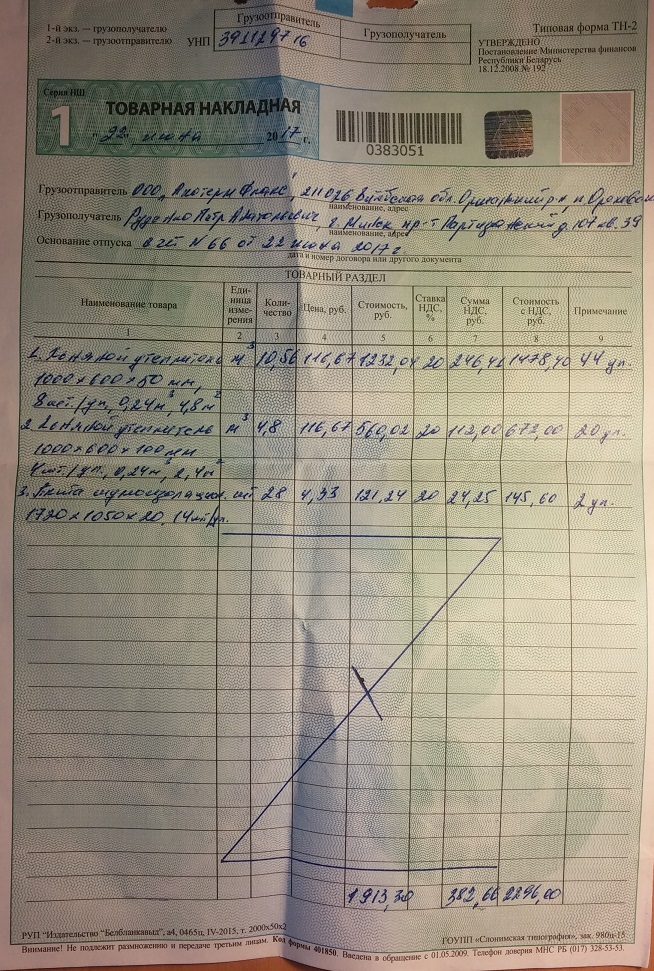 1-й экз. — грузополучателю
2-й экз. — грузоотправителю
Грузоотправитель
Грузополучатель
УНП 391129716
Типовая форма ТН-2
УТВЕРЖДЕНО
Постановление Министерства финансов
Республики Беларусь
18.12.2008 № 192
Серия НШ
1
ТОВАРНАЯ НАКЛАДНАЯ
"22" июня 2017 г.
0383051
Грузоотправитель ООО Флакс", 211026 Витебская обл. р-н, п.
наименование, адрес
Грузополучатель Руденко Петр Анатольевич, г. Минск, пр-т Партизанский д. 107 кв. 39
наименование, адрес
Основание отпуска счет N 66 от 22 июня 2017 г.
дата и номер договора или другого документа
ТОВАРНЫЙ РАЗДЕЛ
Наименование товара Еди-ница изме-рения Коли-чество Цена, руб. Стоимость, руб. Ставка НДС, % Сумма НДС, руб. Стоимость с НДС, руб. Примечание
1 2 3 4 5 6 7 8 9
1. Льняной утеплитель м³ 10,56 116,67 1232,04 20 246,41 1478,40 44 уп.
1000×600×50 мм,
8 шт./уп, 0,24 м³, 4,8 м²
2. Льняной утеплитель м³ 4,8 116,67 560,02 20 112,00 672,00 20 уп.
1000×600×100 мм
4 шт/уп., 0,24 м³, 2,4 м²
3. Плита шумоизоляцион. шт 28 4,33 121,24 20 24,25 145,60 2 уп.
1720×1050×20, 14 шт/уп.
1913,30 382,66 2296,00
РУП "Издательство "Белбланкавыд", а4, 0465ц, IV-2015, т. 2000х50х2
ГОУПП «Слонимская типография», зак. 980ц-15
Внимание! Не подлежит размножению и передаче третьим лицам. Код формы 401850. Введена в обращение с 01.05.2009. Телефон доверия МНС РБ (017) 328-53-53.